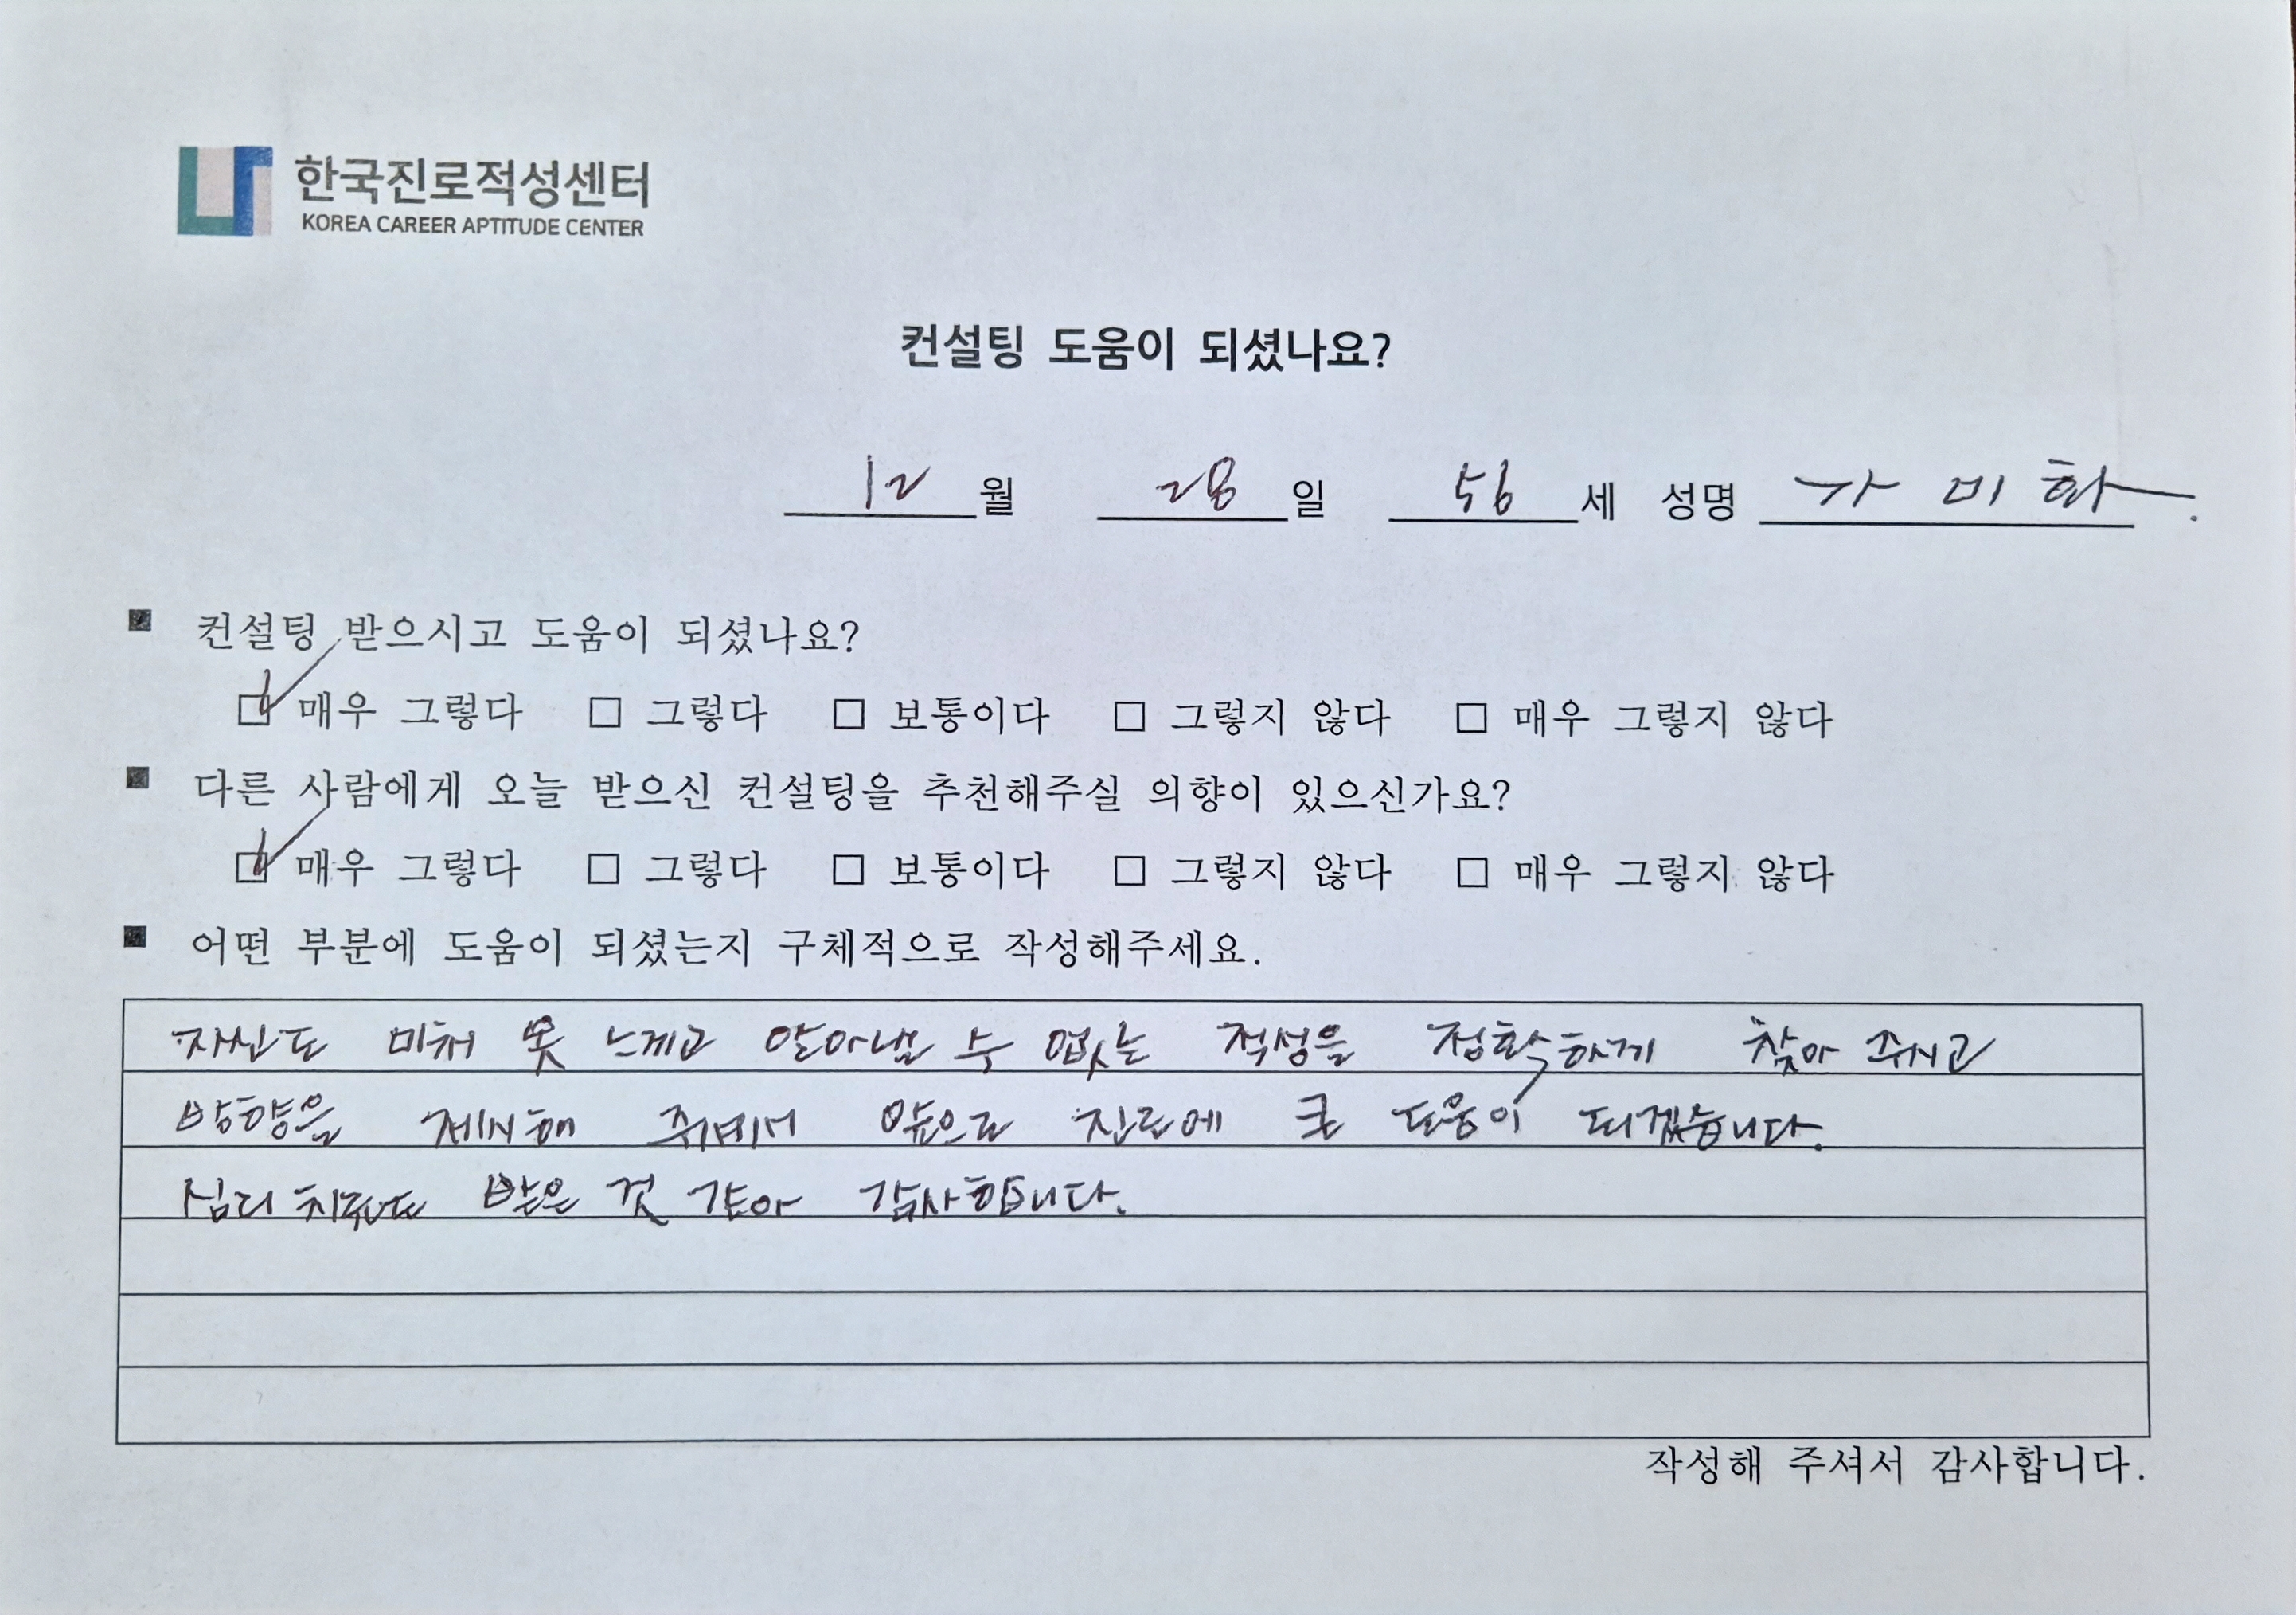 한국진로적성센터
KOREA CAREER APTITUDE CENTER
컨설팅 도움이 되셨나요?
12 월 28 일 56 세 성명 가 미 화
■ 컨설팅 받으시고 도움이 되셨나요?
☑ 매우 그렇다 □ 그렇다 □ 보통이다 □ 그렇지 않다 □ 매우 그렇지 않다
■ 다른 사람에게 오늘 받으신 컨설팅을 추천해주실 의향이 있으신가요?
☑ 매우 그렇다 □ 그렇다 □ 보통이다 □ 그렇지 않다 □ 매우 그렇지 않다
■ 어떤 부분에 도움이 되셨는지 구체적으로 작성해주세요.
자신도 미처 못 느끼고 알아낼 수 없는 적성을 정확하게 찾아 주시고
방향을 제시해 줘서 앞으로 진로에 큰 도움이 되겠습니다.
심리 치료도 받은 것 같아 감사합니다.
작성해 주셔서 감사합니다.